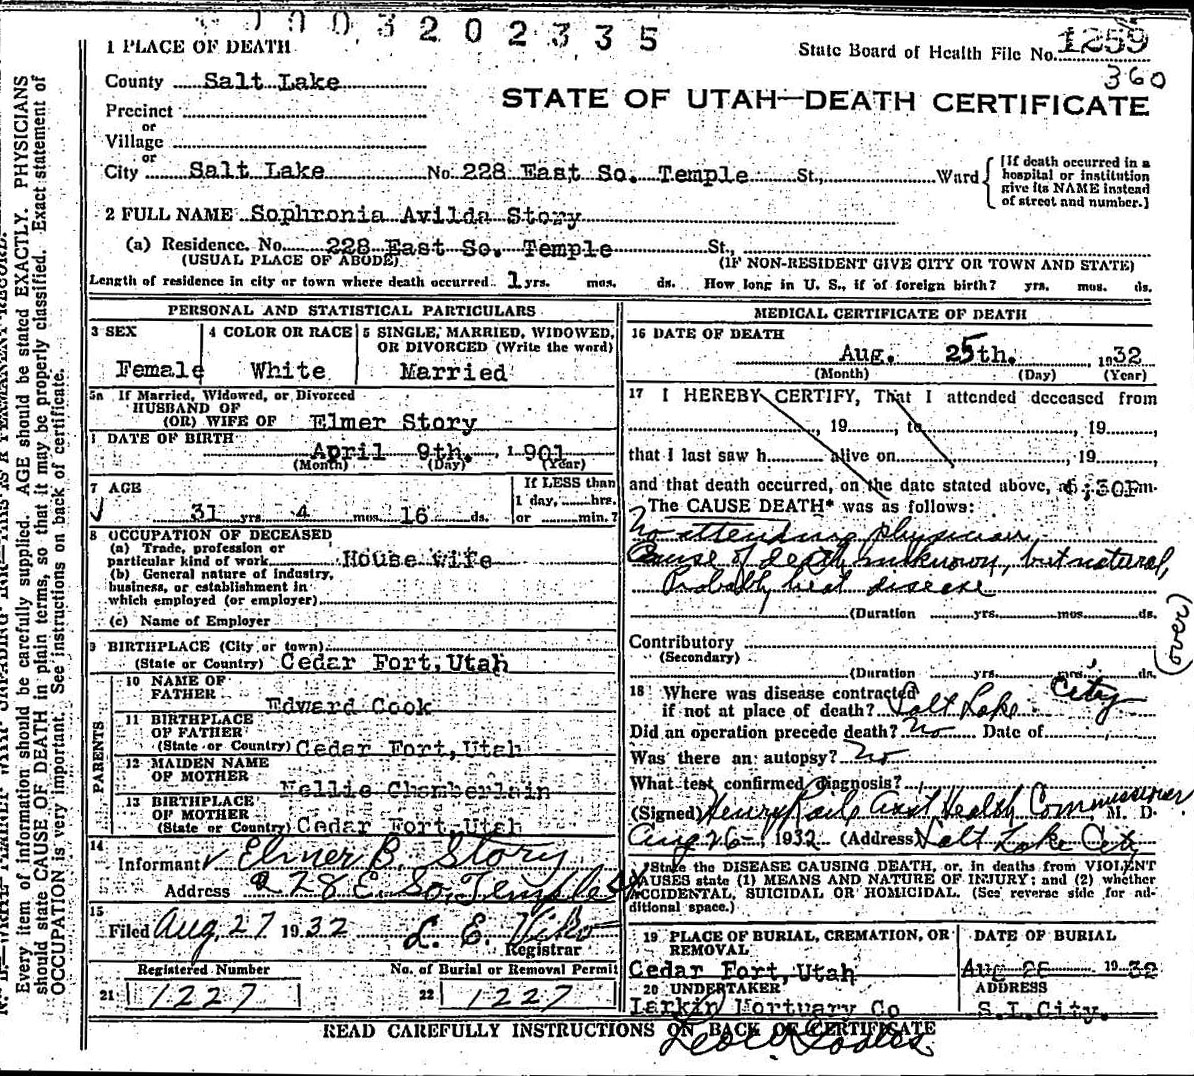 003202335
1 PLACE OF DEATH
State Board of Health File No. 1259
360
County Salt Lake
STATE OF UTAH—DEATH CERTIFICATE
Precinct
or
Village
or
City Salt Lake No. 228 East So. Temple St., Ward
[If death occurred in a hospital or institution give its NAME instead of street and number.]
2 FULL NAME Sophronia Avilda Story
(a) Residence. No. 228 East So. Temple St.,
(USUAL PLACE OF ABODE) (IF NON-RESIDENT GIVE CITY OR TOWN AND STATE)
Length of residence in city or town where death occurred. 1 yrs. mos. ds. How long in U. S., if of foreign birth? yrs. mos. ds.
PERSONAL AND STATISTICAL PARTICULARS
3 SEX
Female
4 COLOR OR RACE
White
5 SINGLE, MARRIED, WIDOWED, OR DIVORCED (Write the word)
Married
5a If Married, Widowed, or Divorced
HUSBAND OF
(OR) WIFE OF Elmer Story
DATE OF BIRTH
April 9th. , 1901
(Month) (Day) (Year)
7 AGE
31 yrs. 4 mos. 16 ds.
If LESS than
1 day, hrs.
or min.?
8 OCCUPATION OF DECEASED
(a) Trade, profession or
particular kind of work House wife
(b) General nature of industry,
business, or establishment in
which employed (or employer)
(c) Name of Employer
9 BIRTHPLACE (City or town)
(State or Country) Cedar Fort, Utah
PARENTS
10 NAME OF
FATHER Edward Cook
11 BIRTHPLACE
OF FATHER
(State or Country) Cedar Fort, Utah
12 MAIDEN NAME
OF MOTHER Nellie Chamberlain
13 BIRTHPLACE
OF MOTHER
(State or Country) Cedar Fort, Utah
14
Informant Elmer B. Story
Address 228 E. So. Temple
15
Filed Aug. 27 1932 L. E. Viko
Registrar
Registered Number No. of Burial or Removal Permit
21 1227 22 1227
MEDICAL CERTIFICATE OF DEATH
16 DATE OF DEATH
Aug. 25th. 1932
(Month) (Day) (Year)
17 I HEREBY CERTIFY, That I attended deceased from
, 19 , to , 19 ,
that I last saw h alive on , 19 ,
and that death occurred, on the date stated above, at :30P m.
The CAUSE DEATH* was as follows:
No attending physician,
Cause of death unknown, but natural,
Probably heat disease
(Duration yrs. mos. ds.
Contributory
(Secondary)
(Duration yrs. mos. ds.
(over)
18 Where was disease contracted
if not at place of death? Salt Lake City
Did an operation precede death? No Date of
Was there an autopsy? No
What test confirmed diagnosis?
(Signed) Henry Health Commissioner, M. D.
Aug 26 , 1932 (Address Salt Lake City
*State the DISEASE CAUSING DEATH, or, in deaths from VIOLENT
CAUSES state (1) MEANS AND NATURE OF INJURY; and (2) whether
ACCIDENTAL, SUICIDAL OR HOMICIDAL. (See reverse side for ad-
ditional space.)
19 PLACE OF BURIAL, CREMATION, OR
REMOVAL
Cedar Fort, Utah
DATE OF BURIAL
Aug 28 1932
20 UNDERTAKER
Larkin Mortuary Co
ADDRESS
S.L.City.
READ CAREFULLY INSTRUCTIONS ON BACK OF CERTIFICATE
Every item of information should be carefully supplied. AGE should be stated EXACTLY. PHYSICIANS
should state CAUSE OF DEATH in plain terms, so that it may be properly classified. Exact statement of
OCCUPATION is very important. See instructions on back of certificate.